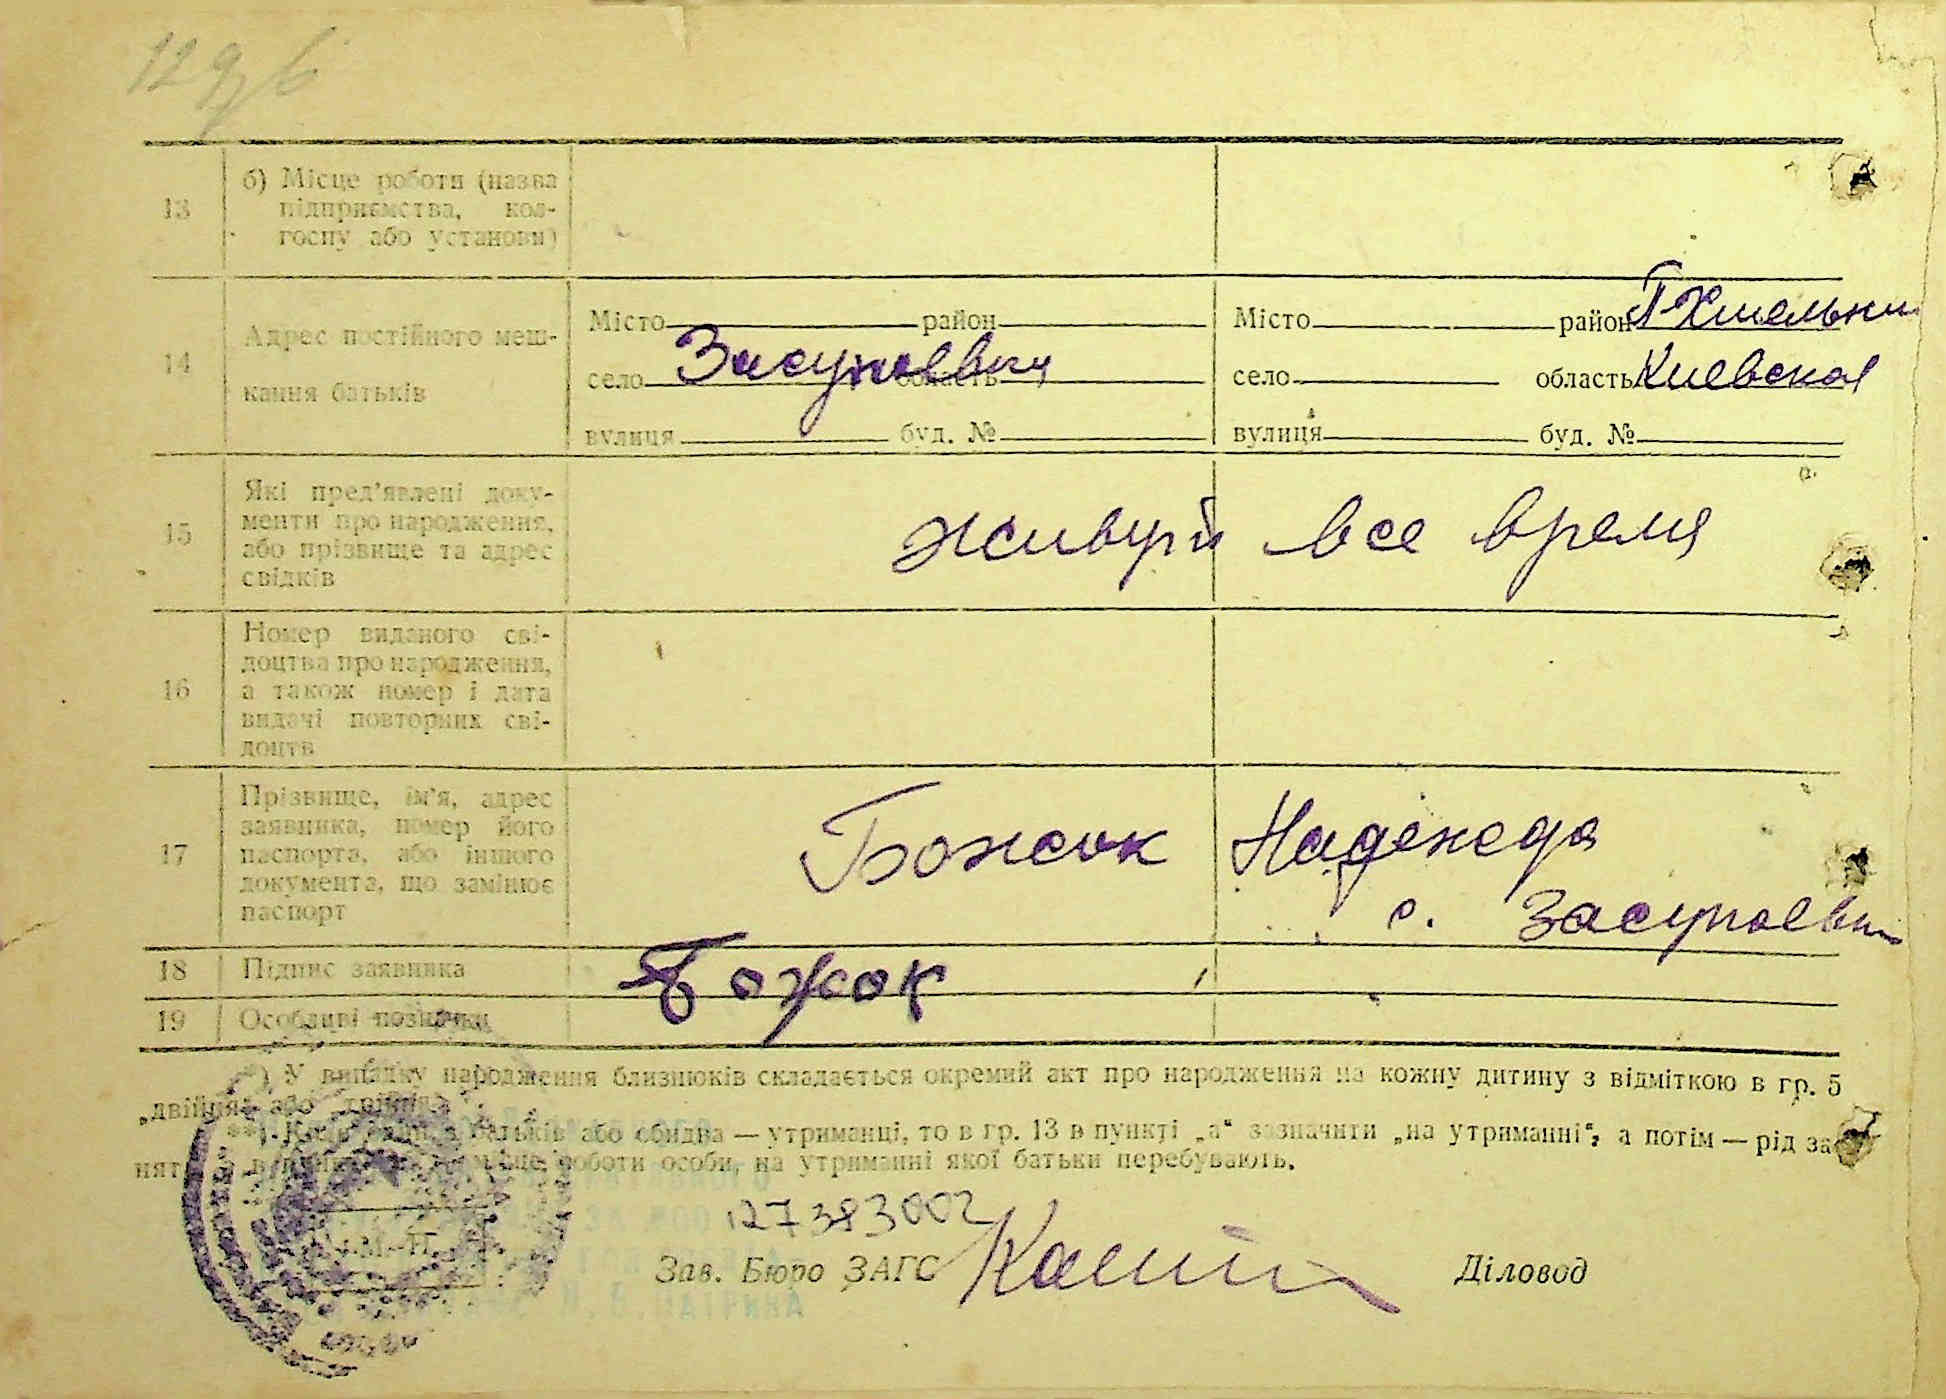 13 б) Місце роботи (назва
підприємства, кол-
госпу або установи)
14 Адрес постійного меш-
кання батьків
Місто район
село Засупоевка область
вулиця буд. №
Місто район П-Хмельни
село область Киевская
вулиця буд. №
15 Які пред'явлені доку-
менти про народження,
або прізвище та адрес
свідків
живут все время
16 Номер виданого сві-
доцтва про народження,
а також номер і дата
видачі повторних сві-
доцтв
17 Прізвище, ім'я, адрес
заявника, номер його
паспорта, або іншого
документа, що замінює
паспорт
Божок Надежда
с. Засупоевка
18 Підпис заявника Божок
19 Особливі позначки
*) У випадку народження близнюків складається окремий акт про народження на кожну дитину з відміткою в гр. 5
„двійня" або „трійня"
**) Коли один з батьків або обидва — утриманці, то в гр. 13 в пункті „а" зазначити „на утриманні", а потім — рід за-
місце роботи особи, на утриманні якої батьки перебувають.
127383002
М. П.
Зав. Бюро ЗАГС Діловод